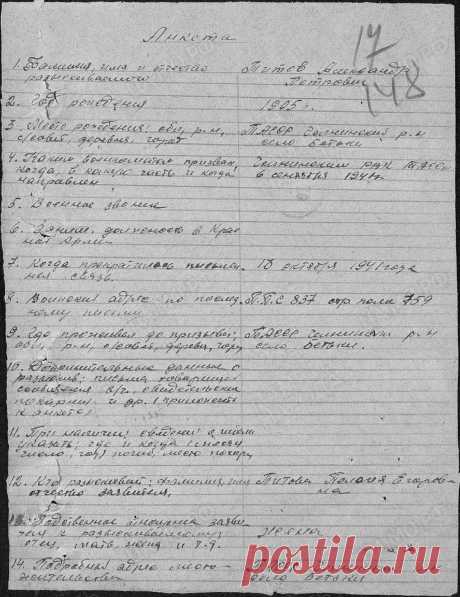 Анкета
17
148
1. Фамилия, имя и отчество разыскиваемого
Титов Александр Петрович
2. Год рождения
1905 г.
3. Место рождения: обл, р-н, с/совет, деревня, город
ТАССР Челнинский р-н село Бетьки
4. Каким военкоматом призван, когда, в какую часть и когда направлен
Челнинским РВК ТАССР в сентября 1941 г.
5. Военное звание
6. Заним. должность в Красной Армии
7. Когда прекратилась письменная связь.
18 октября 1941 года
8. Воинский адрес по последнему письму
П.П.С 837 стр полк 759
9. Где проживал до призыва: обл, р-н, с/совет, деревня, город
ТАССР Челнинский р-н село Бетьки.
10. Дополнительные данные о
письма товарищей
сообщения в/ч,
и др. (приложить к анкете)
11. При наличии сведений о
указать, где и когда (месяц число, год) погиб, место похор.
12. Кто разыскивает: фамилия, имя отчество заявителя,
Титова Пелагея Егоровна
13. Родственное отношение заявителя к разыскиваемому отец, мать, жена и т.д.
жена
14. Подробный адрес местожительства
село Бетьки
postila.ru